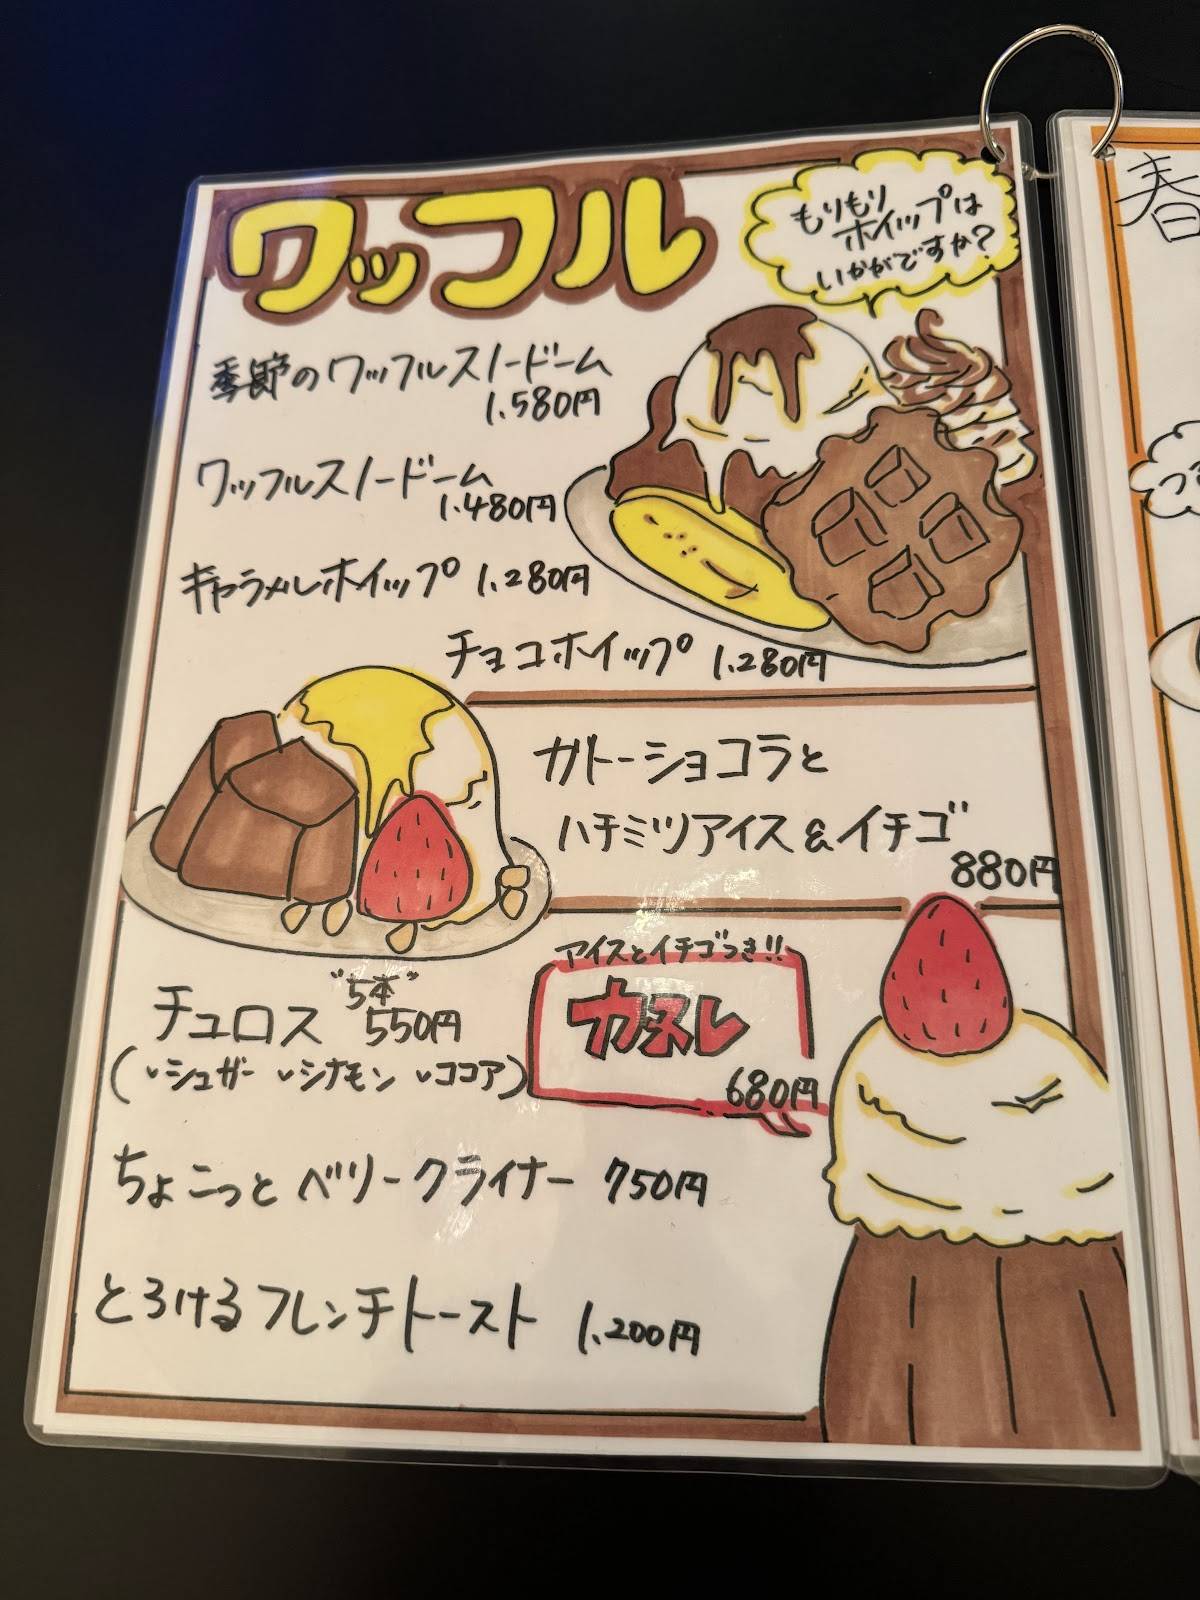 ワッフル
もりもり
ホイップは
いかがですか?
季節のワッフルスノードーム
1.580円
ワッフルスノードーム
1.480円
キャラメルホイップ 1.280円
チョコホイップ 1.280円
ガトーショコラと
ハチミツアイス&イチゴ
880円
アイスとイチゴつき!!
カヌレ
680円
"5本"
チュロス 550円
(✓シュガー ✓シナモン ✓ココア)
ちょこっと ベリークライナー 750円
とろける フレンチトースト 1.200円
春